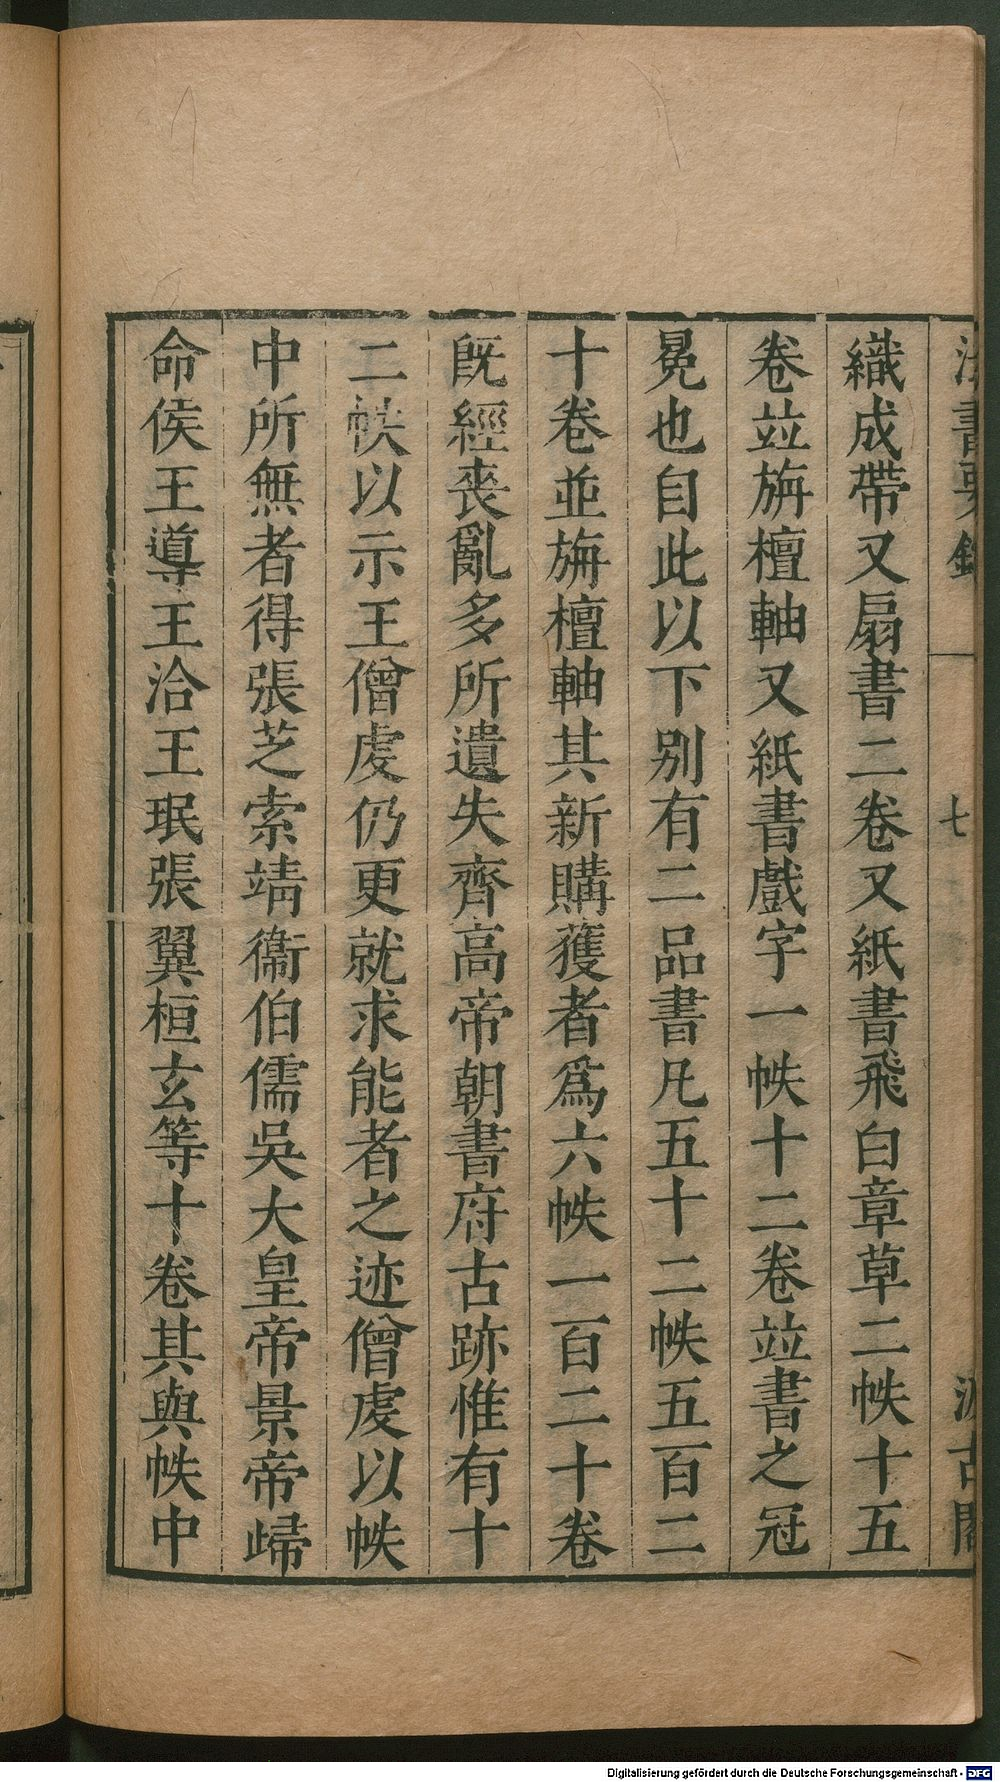 織成帶又扇書二卷又紙書飛白章草二帙十五
卷竝旃檀軸又紙書戲字一帙十二卷竝書之冠
冕也自此以下别有二品書凡五十二帙五百二
十卷並旃檀軸其新購獲者爲六帙一百二十卷
旣經喪亂多所遺失齊高帝朝書府古跡惟有十
二帙以示王僧虔仍更就求能者之迹僧虔以帙
中所無者得張芝索靖衞伯儒吳大皇帝景帝歸
命侯王導王洽王珉張翼桓玄等十卷其與帙中
法書要錄 一 七 汲古閣
Digitalisierung gefördert durch die Deutsche Forschungsgemeinschaft - DFG